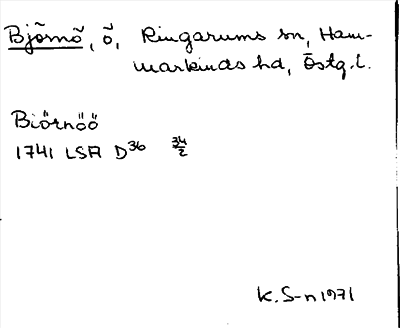 Björnö, ö, Ringarums sn, Ham-
markinds hd, Östg.l.
Biörnöö
1741 LSA D36 34/2
K.S-n 1971